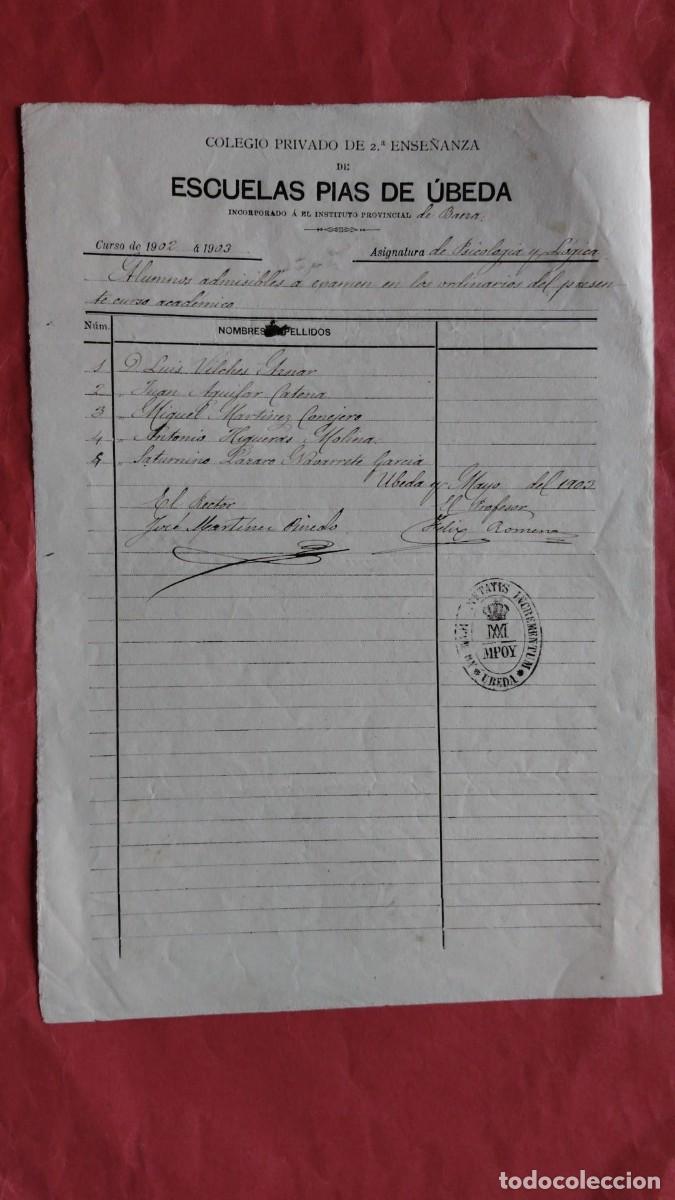 COLEGIO PRIVADO DE 2.ª ENSEÑANZA
DE
ESCUELAS PIAS DE ÚBEDA
INCORPORADO Á EL INSTITUTO PROVINCIAL de Baeza.
Curso de 1902 á 1903 Asignatura de Psicología y Lógica
Alumnos admisibles a examen en los ordinarios del presen-
te curso academico.
Núm. NOMBRES APELLIDOS
1 D. Luis Vilches Aznar
2 " Juan Aguilar Catena
3 " Miguel Martinez Conejero
4 " Antonio Higueras Molina
5 " Saturnino Lázaro Navarrete Garcia
Ubeda y Mayo del 1903
El Rector El Profesor
José Martinez Pinedo Felix Romero
PIETATIS INCREMENTUM
MPOY
* UBEDA *
todocoleccion